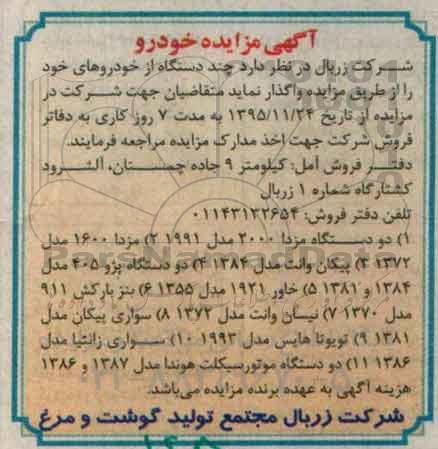 آگهی مزایده خودرو
شرکت زربال در نظر دارد چند دستگاه از خودروهای خود
را از طریق مزایده واگذار نماید متقاضیان جهت شرکت در
مزایده از تاریخ ۱۳۹۵/۱۱/۲۴ به مدت ۷ روز کاری به دفاتر
فروش شرکت جهت اخذ مدارک مزایده مراجعه فرمایند.
دفتر فروش آمل: کیلومتر ۹ جاده چمستان، آلشرود
کشتارگاه شماره ۱ زربال
تلفن دفتر فروش: ۰۱۱۴۳۱۲۲۶۵۴
۱) دو دستگاه مزدا ۲۰۰۰ مدل ۱۹۹۱ ۲) مزدا ۱۶۰۰ مدل
۱۳۷۲ ۳) پیکان وانت مدل ۱۳۸۴ ۴) دو دستگاه پژو ۴۰۵ مدل
۱۳۸۴ و ۱۳۸۱ ۵) خاور ۱۹۲۱ مدل ۱۳۵۵ ۶) بنز بارکش ۹۱۱
مدل ۱۳۷۰ ۷) نیسان وانت مدل ۱۳۷۲ ۸) سواری پیکان مدل
۱۳۸۱ ۹) تویوتا هایس مدل ۱۹۹۳ ۱۰) سواری زانتیا مدل
۱۳۸۶ ۱۱) دو دستگاه موتورسیکلت هوندا مدل ۱۳۸۷ و ۱۳۸۶
هزینه آگهی به عهده برنده مزایده می‌باشد.
شرکت زربال مجتمع تولید گوشت و مرغ